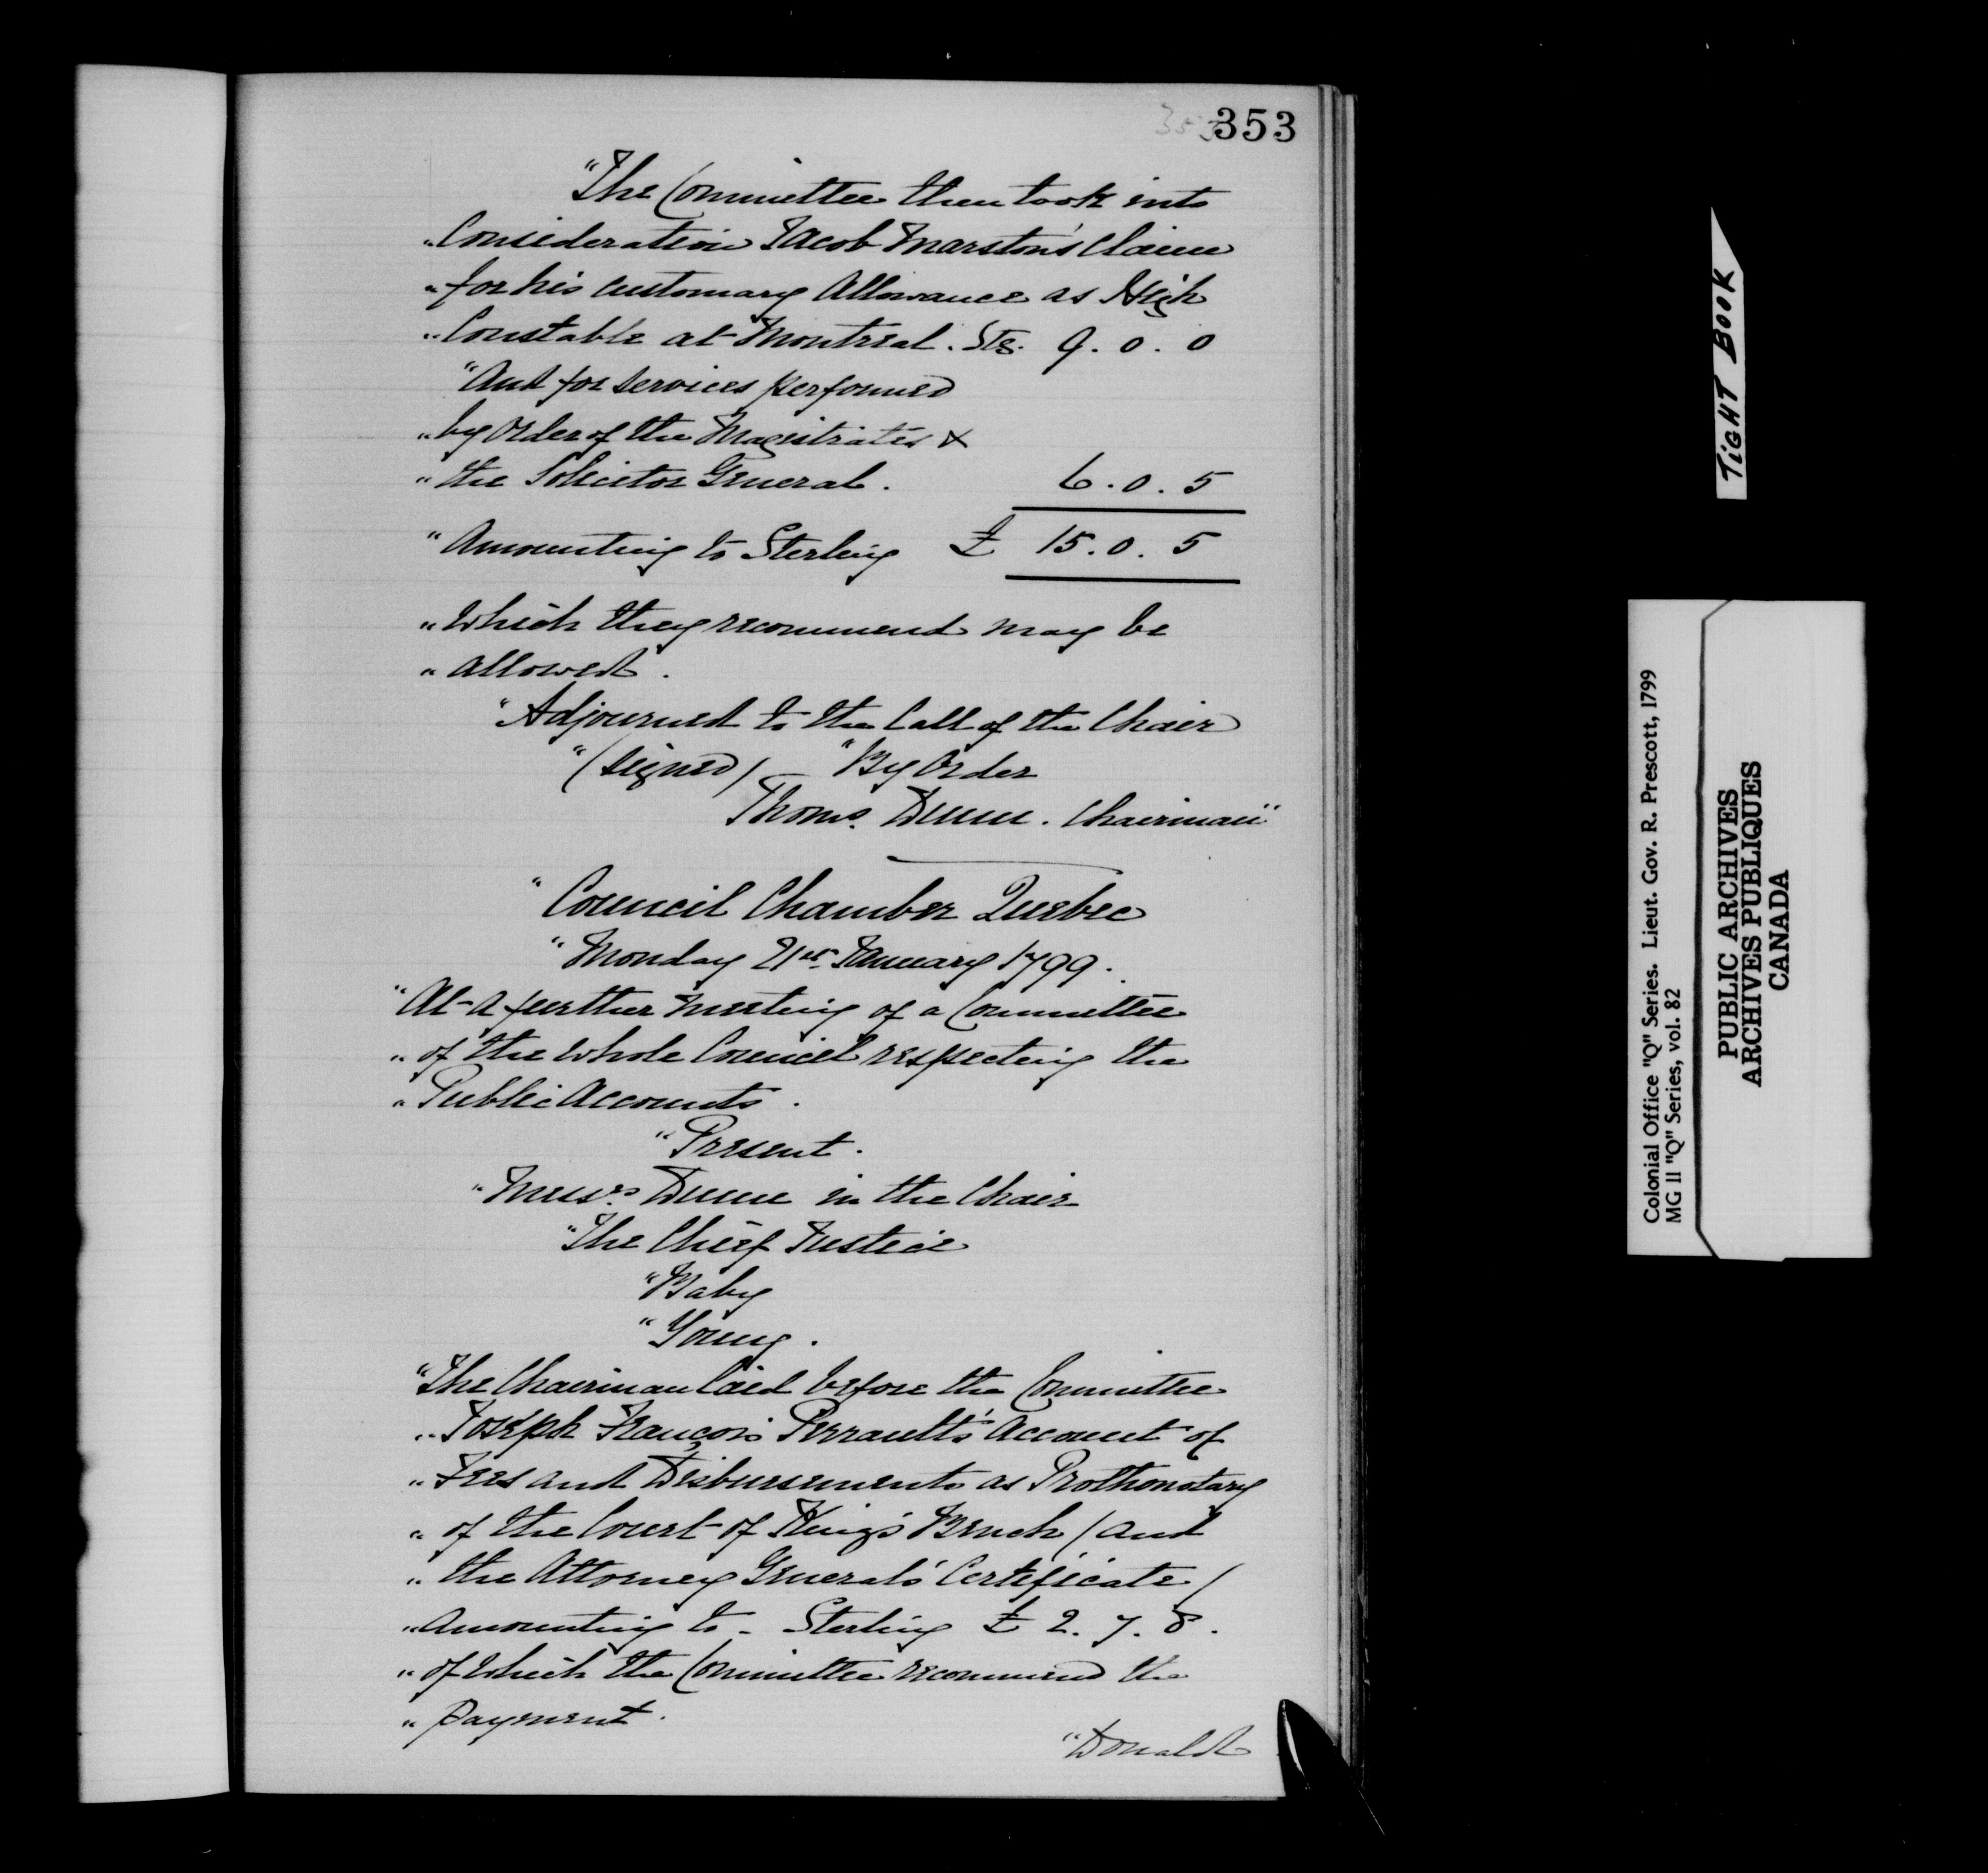 353
353
"The Committee then took into
"Consideration Jacob Marston's Claim
"for his customary Allowance as High
"Constable at Montreal. Stg. 9. 0. 0
"And for services performed
"by Order of the Magistrates &
"the Solicitor General. 6. 0. 5
"Amounting to Sterling £ 15. 0. 5
"Which they recommend may be
"allowed.
"Adjourned to the Call of the Chair
"(signed) "By Order
Thoms. Dunn. Chairman"
"Council Chamber Quebec
"Monday 21st. January 1799.
"At a further Meeting of a Committee
"of the Whole Council respecting the
"Public Accounts.
"Present.
"Messrs. Dunn in the Chair
"The Chief Justice
"Baby
"Young.
"The Chairman laid before the Committee
"Joseph François Perrault's Account of
"Fees and Disbursements as Prothonotary
"of the Court of King's Bench (and
"the Attorney General's Certificate)
"Amounting to - Sterling £ 2. 7. 8.
"of which the Committee recommend the
"payment.
"Donald
TIGHT BOOK
Colonial Office "Q" Series. Lieut. Gov. R. Prescott, 1799
MG 11 "Q" Series, vol. 82
PUBLIC ARCHIVES
ARCHIVES PUBLIQUES
CANADA